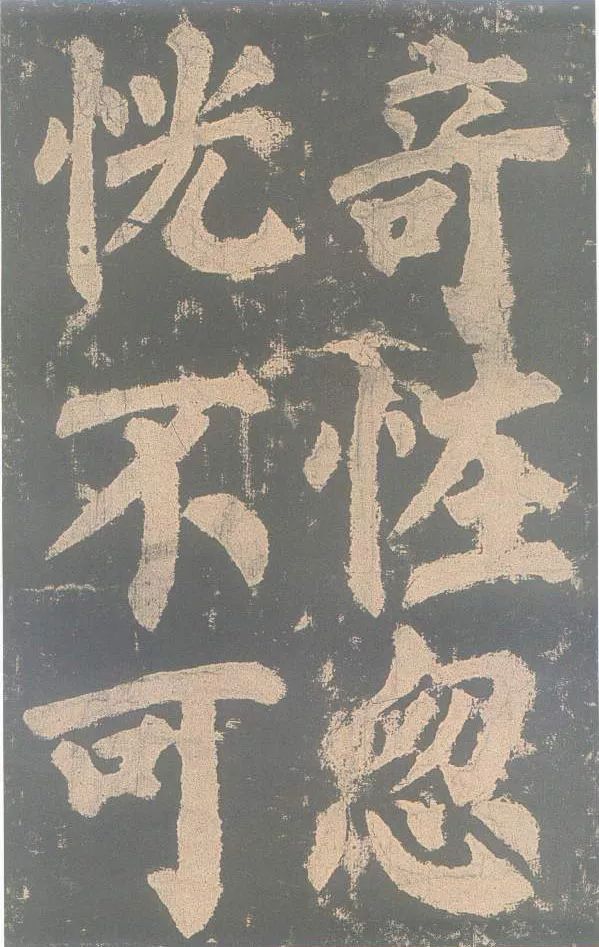 奇性忽
恍不可